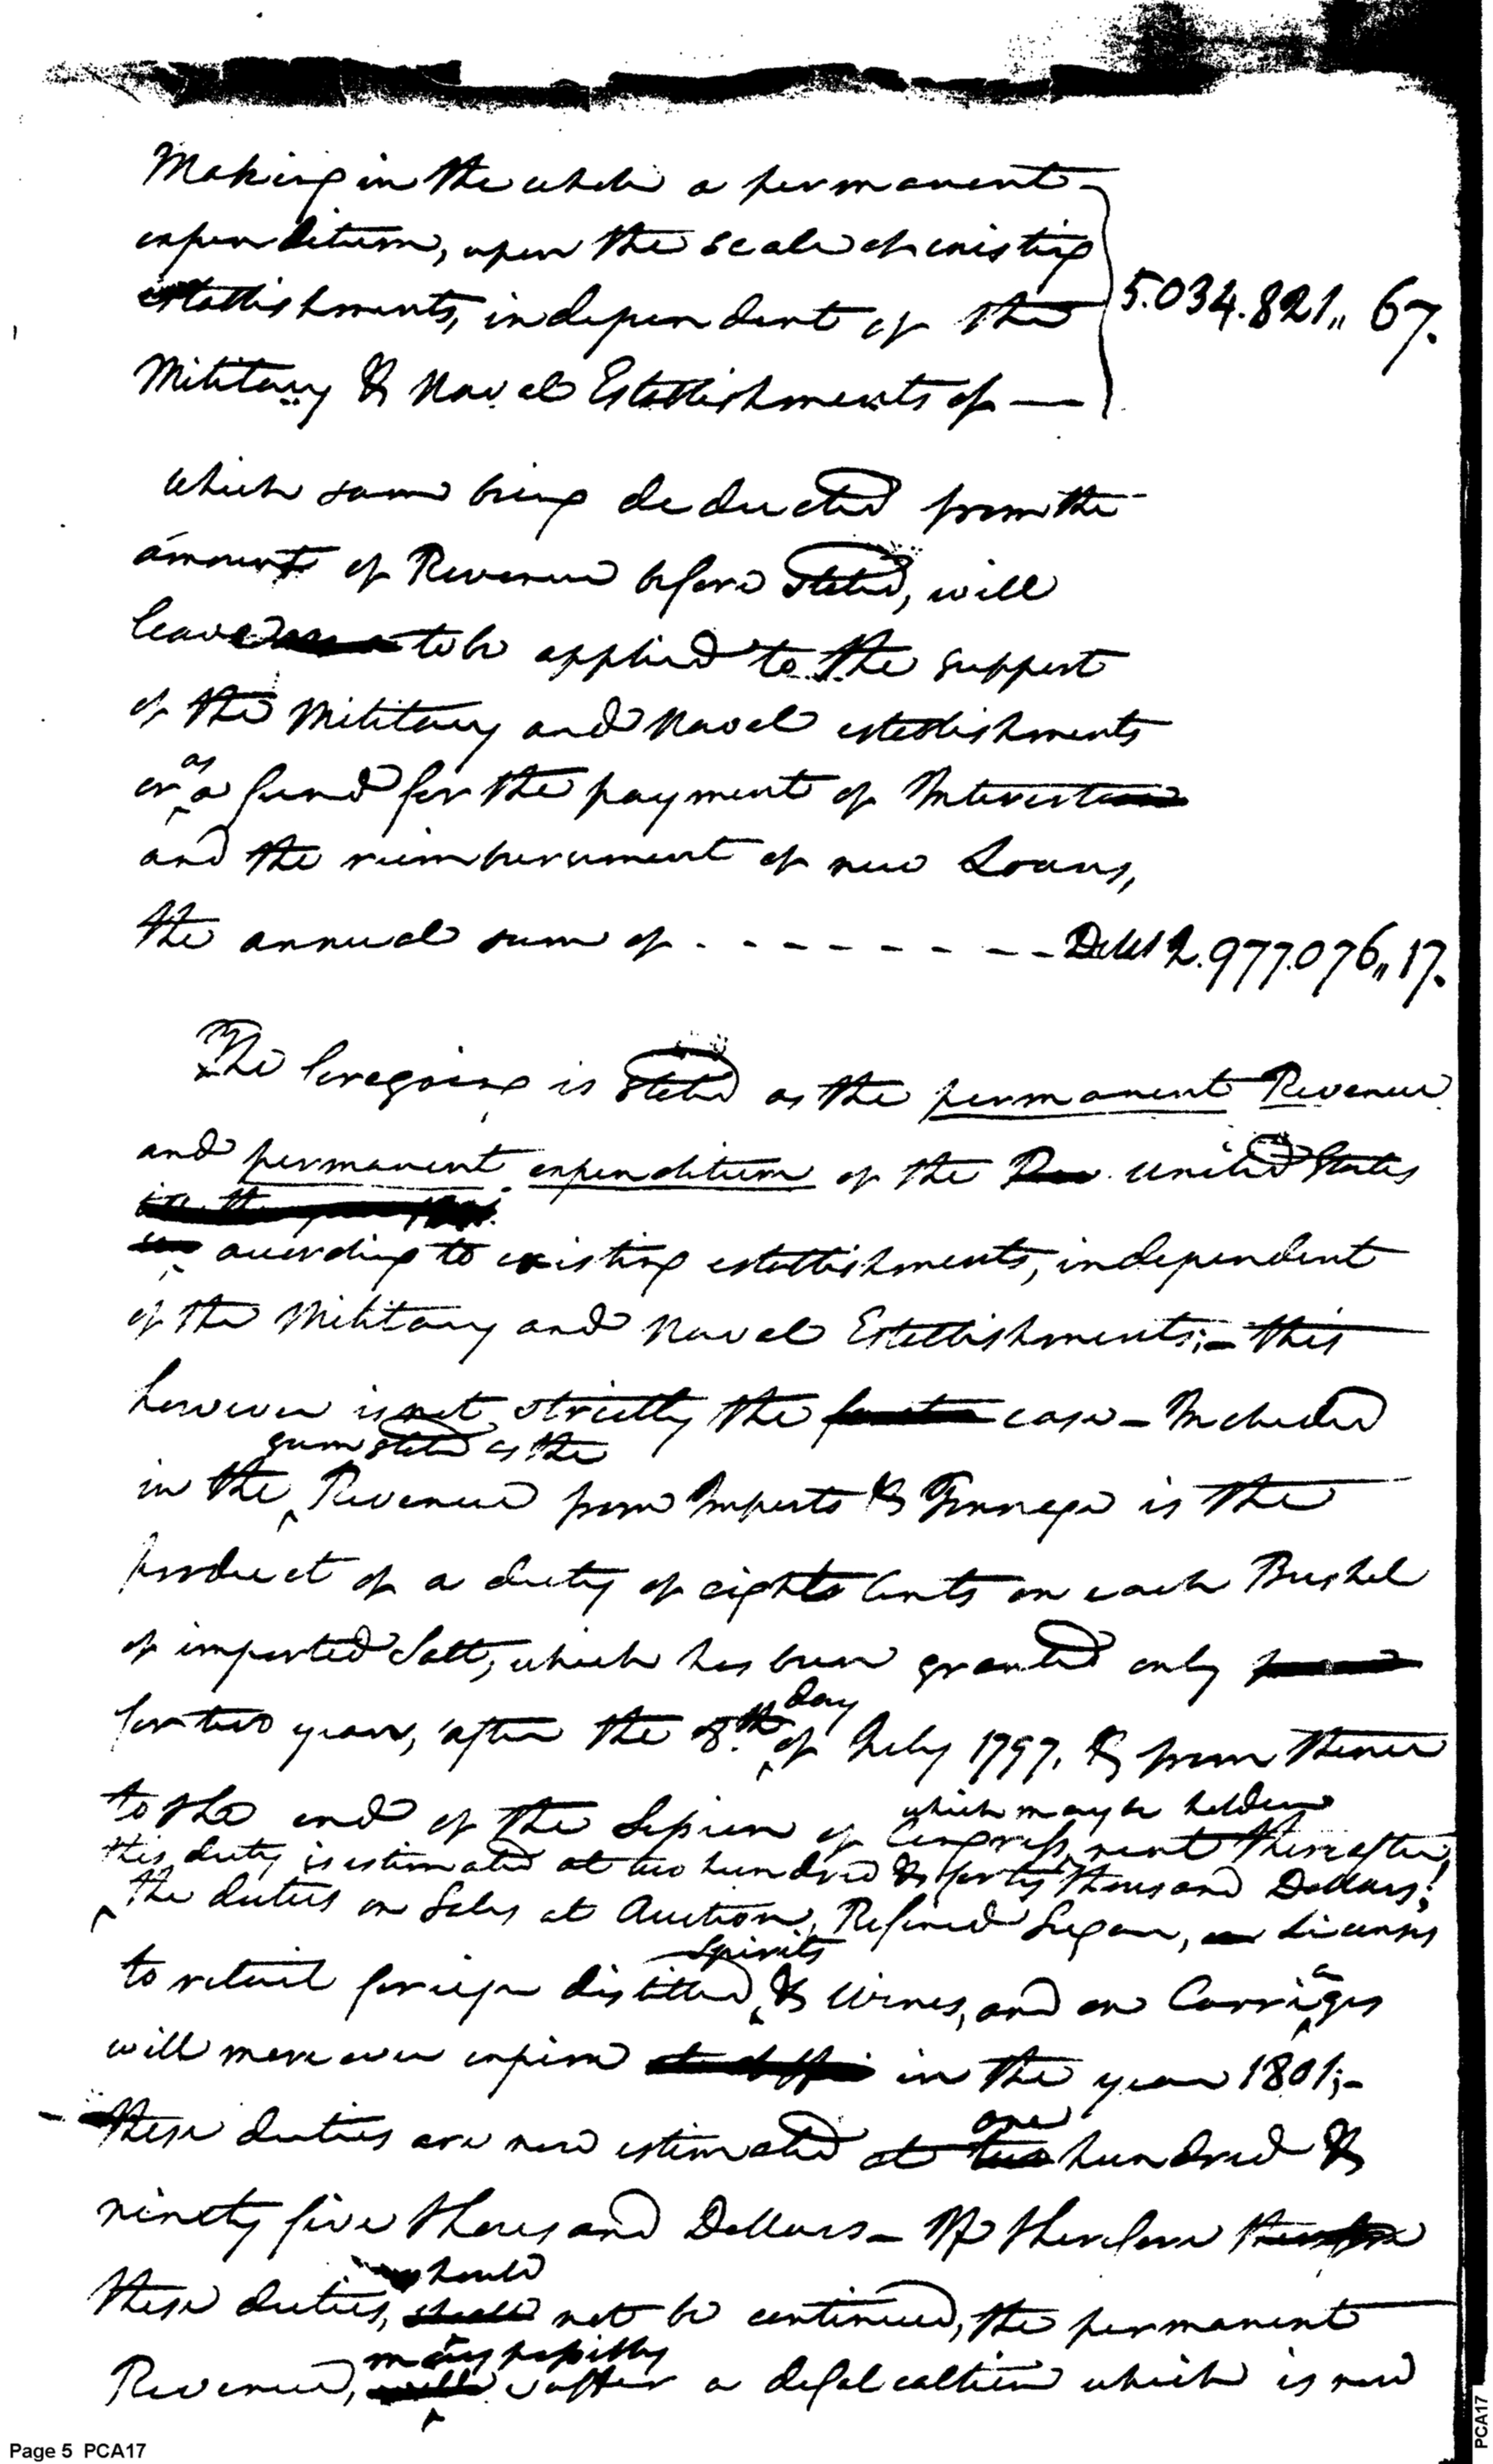 Making in the whole a permanent
expenditure, upon the scale of existing
establishments, independent of the
Military & Naval Establishments of —
5.034.821,, 67.
which sum being deducted from the
amount of Revenue before stated, will
leave to be applied to the support
of the Military and Naval establishments
as
or a fund for the payment of Interest
and the reimbursement of new Loans,
the annual sum of - - - - - - - - Dolls 2.977.076,, 17.
The foregoing is stated as the permanent Revenue
and permanent expenditure of the United States
according to existing establishments, independent
of the Military and Naval Establishments; – this
however is not strictly the case – Included
sum stated as the
in the Revenue from Imposts & Tonnage is the
product of a duty of eight Cents on each Bushel
of imported Salt, which has been granted only
day
for two years, after the 8th of July 1797. & from thence
which may be holden
to the end of the Session of Congress, next thereafter,
this duty is estimated at two hundred & forty thousand Dollars;
the duties on Sales at Auction, Refined Sugar, Licenses
Spirits
to retail foreign distilled & Wines, and on Carriages
will moreover expire in the year 1801; –
one
– these duties are now estimated at two hundred &
ninety five thousand Dollars – If therefore
should
these duties, shall not be continued, the permanent
may possibly
Revenue, will suffer a defalcation which is now
Page 5 PCA17
PCA17